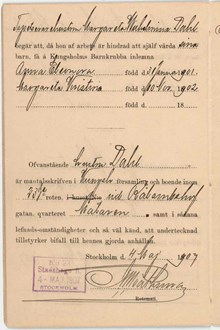 Tapetserarehustrun Margareta Wilhelmina Dahl
begär att, då hon af arbete är hindrad att själf vårda sina
barn, få å Kungsholms Barnkrubba inlemna
Anna Eleonora född d Januari 1901.
Margareta Kristina född d 10 Nov. 1902
född d. 18
Ofvanstående hustru Dahl
är mantalsskrifven i församling och boende inom
roten. i huset vid Rålambshof
gatan, qvarteret Mataren samt i sådana
lefnadsomständigheter och så väl känd, att undertecknad
tillstyrker bifall till hennes gjorda anhållan.
Stockholm d. 4 Maj 1907
Rotemän.
4 - MAJ 1907
STOCKHOLM